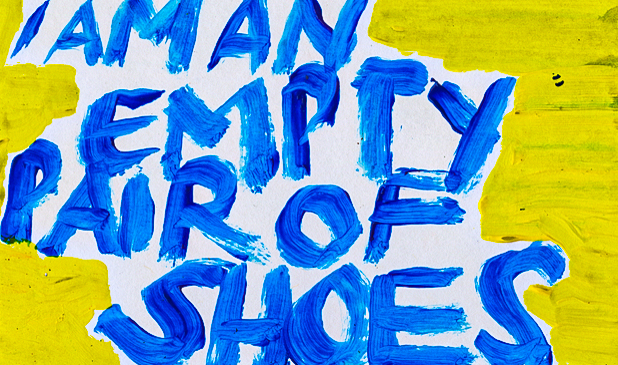 I AM AN
EMPTY
PAIR OF
SHOES